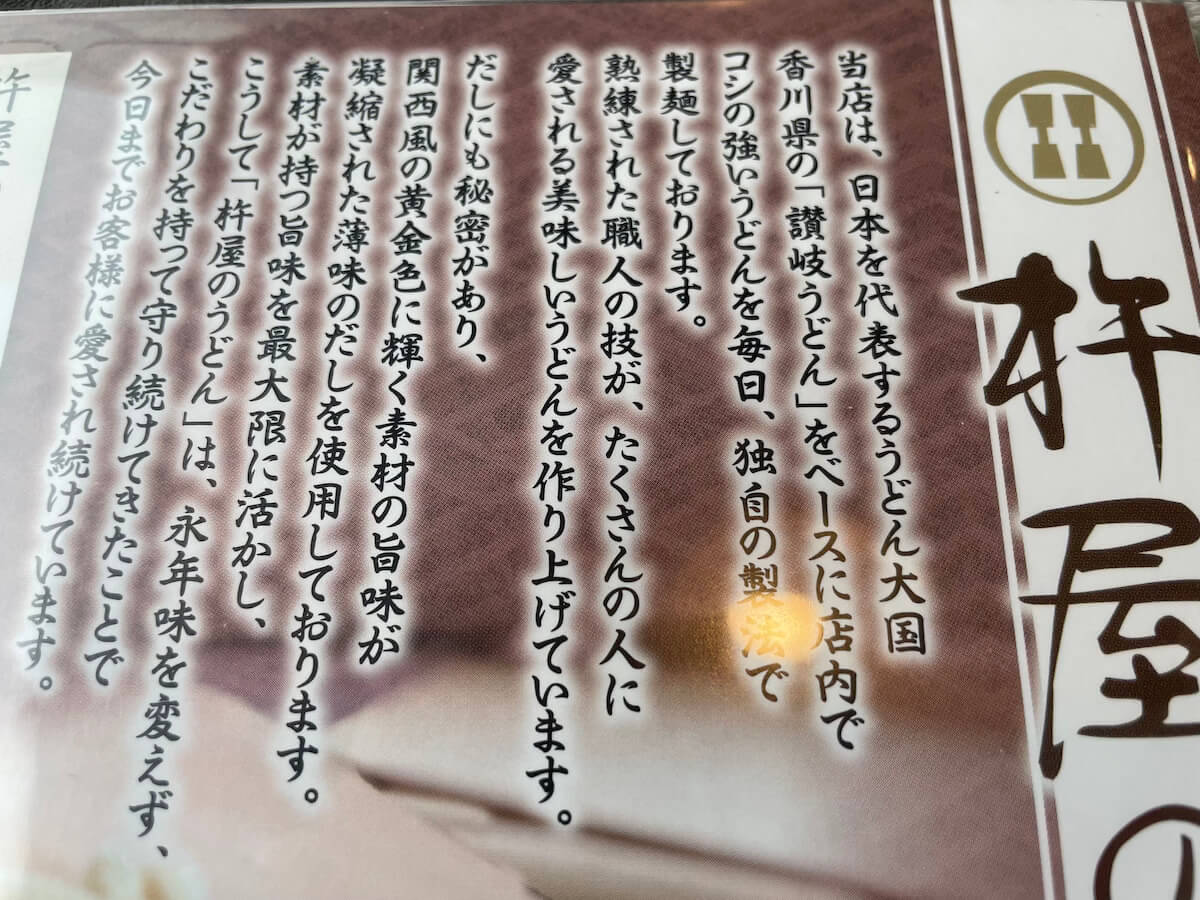 杵屋の
当店は、日本を代表するうどん大国
香川県の「讃岐うどん」をベースに店内で
コシの強いうどんを毎日、独自の製法で
製麺しております。
熟練された職人の技が、たくさんの人に
愛される美味しいうどんを作り上げています。
だしにも秘密があり、
関西風の黄金色に輝く素材の旨味が
凝縮された薄味のだしを使用しております。
素材が持つ旨味を最大限に活かし、
こうして「杵屋のうどん」は、永年味を変えず、
こだわりを持って守り続けてきたことで
今日までお客様に愛され続けています。
杵屋